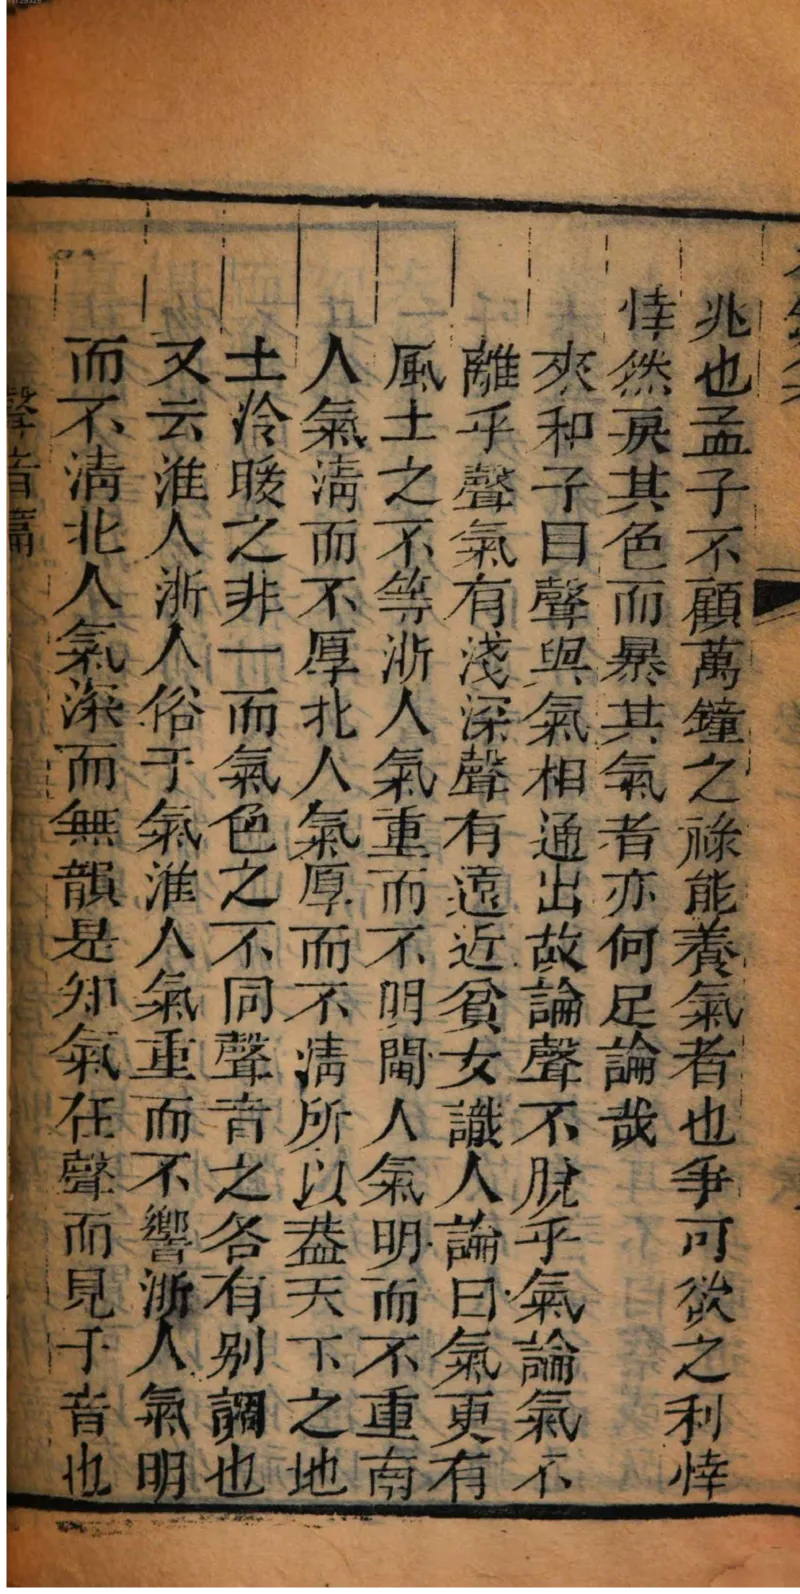 兆也孟子不顧萬鐘之祿能養氣者也爭可欲之利悻
悻然戾其色而暴其氣者亦何足論哉
爽和子曰聲與氣相通出故論聲不脫乎氣論氣不
離乎聲氣有淺深聲有遠近貧女識人論曰氣更有
風土之不等浙人氣重而不明閩人氣明而不重南
人氣淸而不厚北人氣厚而不淸所以葢天下之地
土冷暖之非一而氣色之不同聲音之各有别調也
又云淮人浙人俗于氣淮人氣重而不響浙人氣明
而不淸北人氣深而無韻是知氣在聲而見于音也
聲音篇